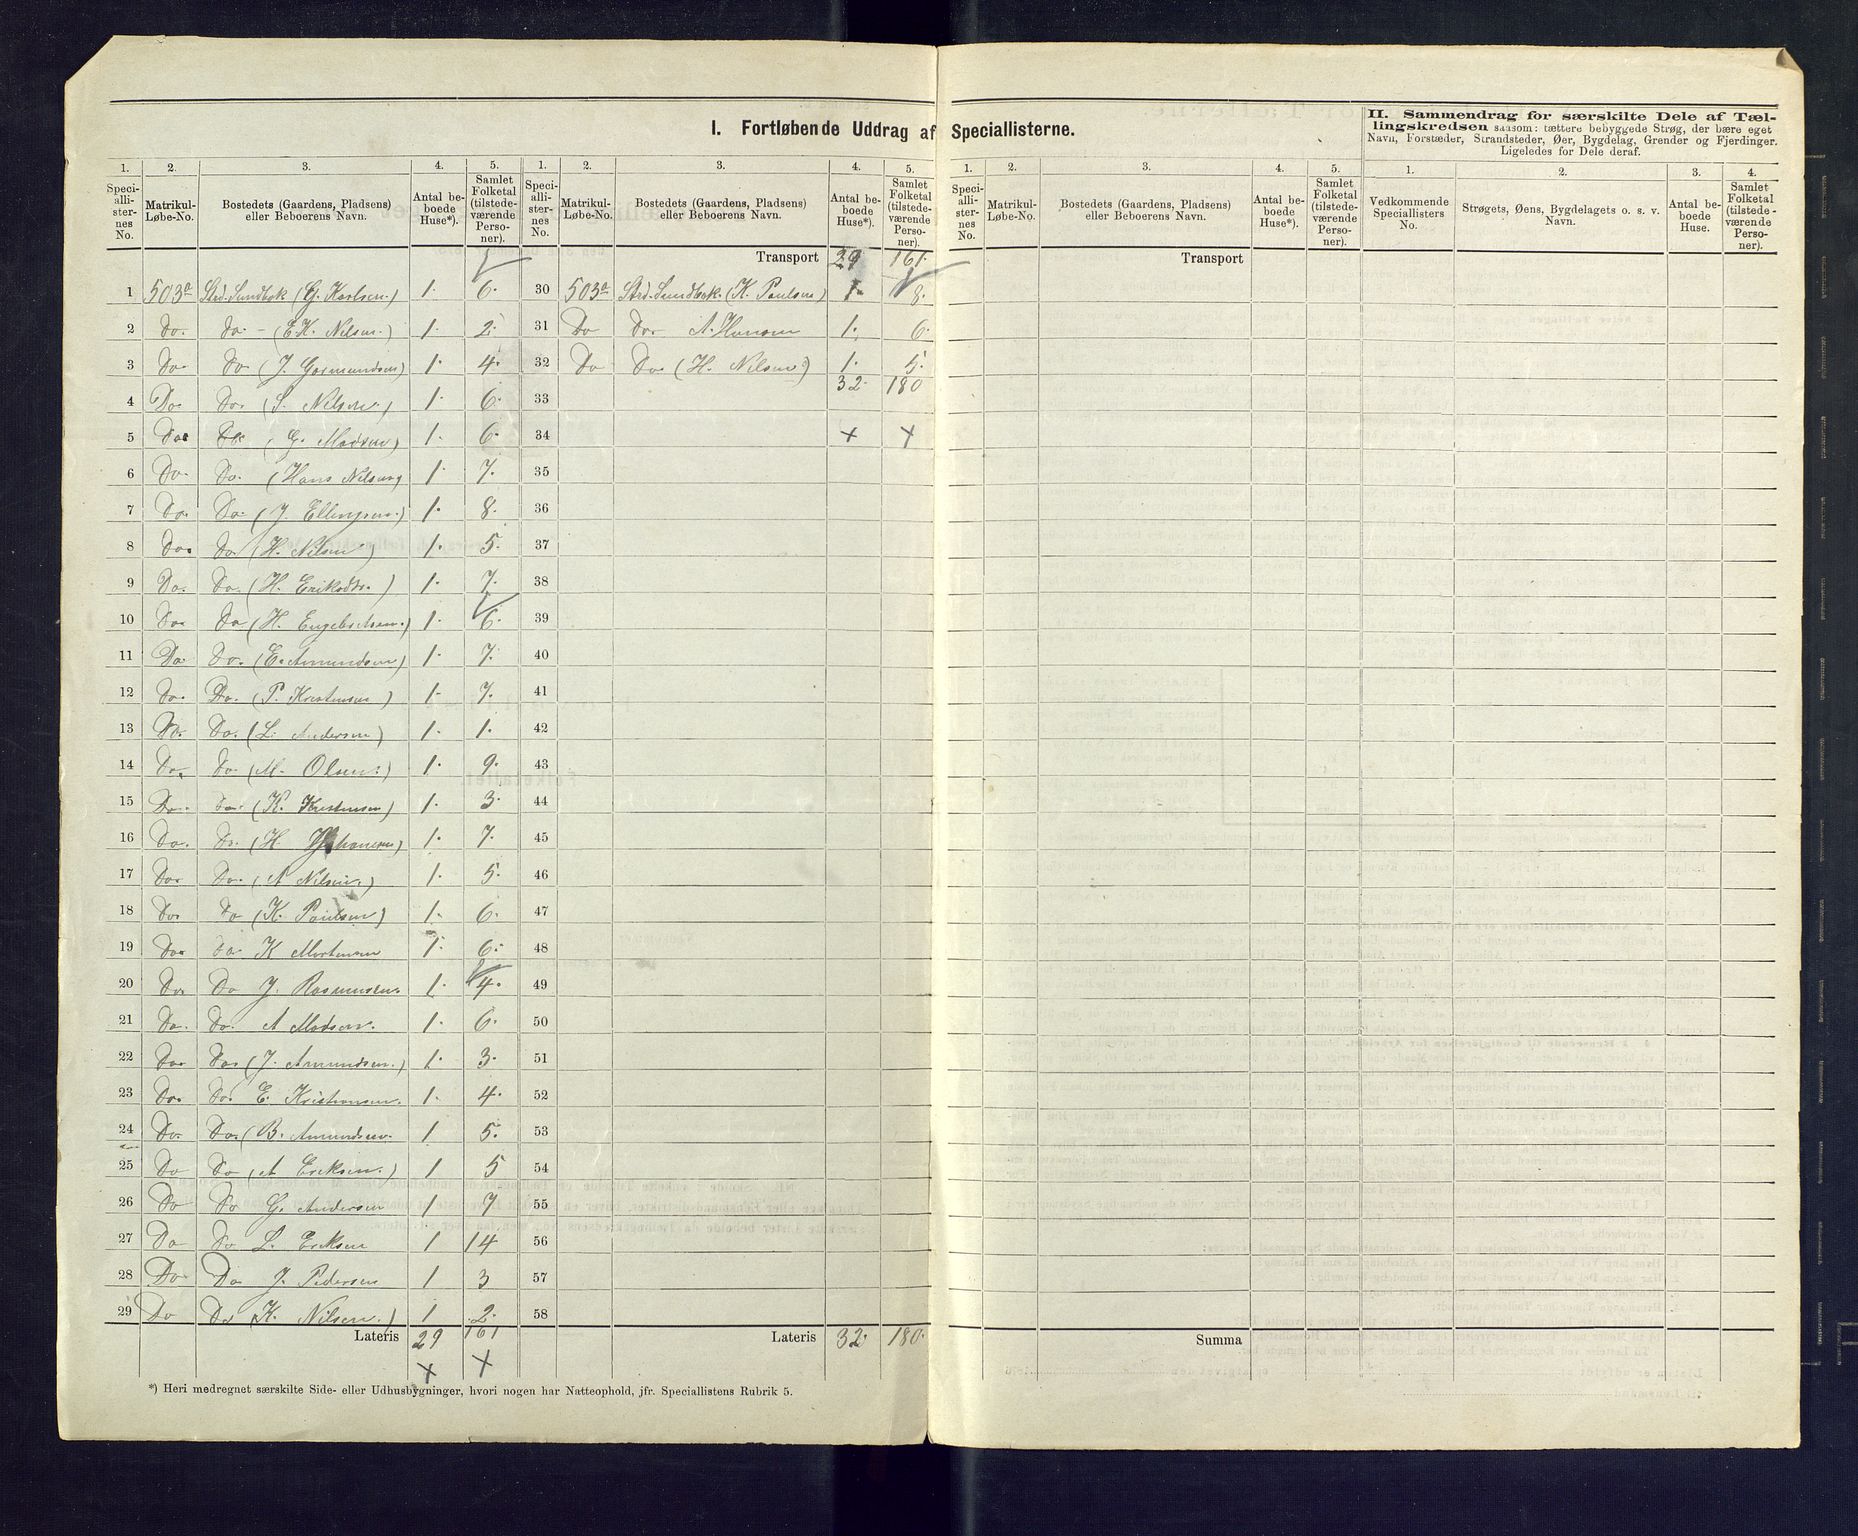 I. Fortløbende Uddrag af Speciallisterne.
II. Sammendrag for særskilte Dele af Tællingskredsen saasom: tættere bebyggede Strøg, der bære eget
Navn, Forstæder, Strandsteder, Øer, Bygdelag, Grender og Fjerdinger.
Ligeledes for Dele deraf.
1. 2. 3. 4. 5. 1. 2. 3. 4. 5. 1. 2. 3. 4. 5. 1. 2. 3. 4.
Speciallisternes No. Matrikul-Løbe-No. Bostedets (Gaardens, Pladsens) eller Beboerens Navn. Antal beboede Huse*). Samlet Folketal (tilstedeværende Personer).
Speciallisternes No. Matrikul-Løbe-No. Bostedets (Gaardens, Pladsens) eller Beboerens Navn. Antal beboede Huse*). Samlet Folketal (tilstedeværende Personer).
Speciallisternes No. Matrikul-Løbe-No. Bostedets (Gaardens, Pladsens) eller Beboerens Navn. Antal beboede Huse*). Samlet Folketal (tilstedeværende Personer).
Vedkommende Speciallisters No. Strøgets, Øens, Bygdelagets o. s. v. Navn. Antal beboede Huse. Samlet Folketal (tilstedeværende Personer).
Transport 29 161. Transport
1 503a Strd. Sundbok (G. Karlsen.) 1. 6. 30 503a Strd. Sundbok. (K. Paulsen) 1. 8.
2 Do. Do. - (E. K. Nilsen.) 1. 2. 31 Do Do. A. Hansen 1. 6.
3 Do. Do. (J. Gosmundsen) 1. 4. 32 Do Do. (H. Nilsen) 1. 5.
32. 180
4 Do. Do. (S. Nilsen.) 1. 6. 33
5 Do. Do. (G. Madsen) 1. 6. 34 × ×
6 Do. Do. (Hans Nilsen) 1. 7. 35
7 Do. Do. (J. Ellingsen.) 1. 8. 36
8 Do. Do (H. Nilsen) 1. 5. 37
9 Do. Do. (H. Eriksdtr.) 1. 7. 38
10 Do. Do (H. Engebretsen.) 1. 6. 39
11 Do Do. (E. Amundsen) 1. 7. 40
12 Do. Do. (P. Kristensen) 1. 7. 41
13 Do. Do. (L. Andersen) 1. 1. 42
14 Do. Do. (M. Olsen.) 1. 9. 43
15 Do. Do. (K. Kristensen) 1. 3. 44
16 Do. Do. (H. Johansen) 1. 7. 45
17 Do. Do. (A Nilsen.) 1. 5. 46
18 Do. Do (K. Paulsen) 1. 6. 47
19 Do. Do K Mortensen 1. 6. 48
20 Do. Do J. Rasmussen. 1. 4. 49
21 Do. Do. A Madsen. 1. 6. 50
22 Do. Do. (J. Amundsen.) 1. 3. 51
23 Do. Do. E. Kristiansen. 1. 4. 52
24 Do. Do. (B. Amundsen. 1 5. 53
25 Do Do (A Eriksen.) 1 5 54
26 Do Do G. Andersen 1 7 55
27 Do Do L. Eriksen 1 14 56
28 Do Do J. Pedersen 1 3 57
29 Do Do (K. Nilsen.) 1 2. 58
Lateris 29 161 Lateris 32. 180. Summa
× ×
*) Heri medregnet særskilte Side- eller Udhusbygninger, hvori nogen har Natteophold, jfr. Speciallistens Rubrik 5.